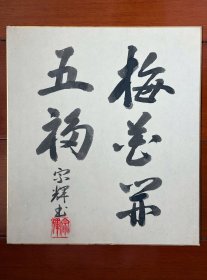 梅花開
五福
宗輝書